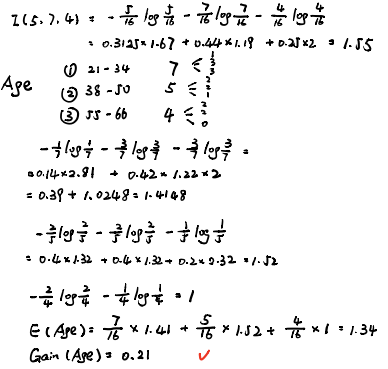 I(5,7,4) = - 5/16 log 5/16 - 7/16 log 7/16 - 4/16 log 4/16
= 0.3125×1.67 + 0.44×1.19 + 0.25×2 = 1.55
Age
① 21-34 7 < 1 3 3
② 38-50 5 < 2 2 1
③ 55-66 4 < 2 2 0
- 1/7 log 1/7 - 3/7 log 3/7 - 3/7 log 3/7 =
=0.14×2.81 + 0.42×1.22×2
= 0.39 + 1.0248 = 1.4148
- 2/5 log 2/5 - 2/5 log 2/5 - 1/5 log 1/5
= 0.4×1.32 + 0.4×1.32 + 0.2×2.32 = 1.52
- 2/4 log 2/4 - 1/4 log 1/4 = 1
E(Age) = 7/16 × 1.41 + 5/16 × 1.52 + 4/16 × 1 = 1.34
Gain(Age) = 0.21 ✓